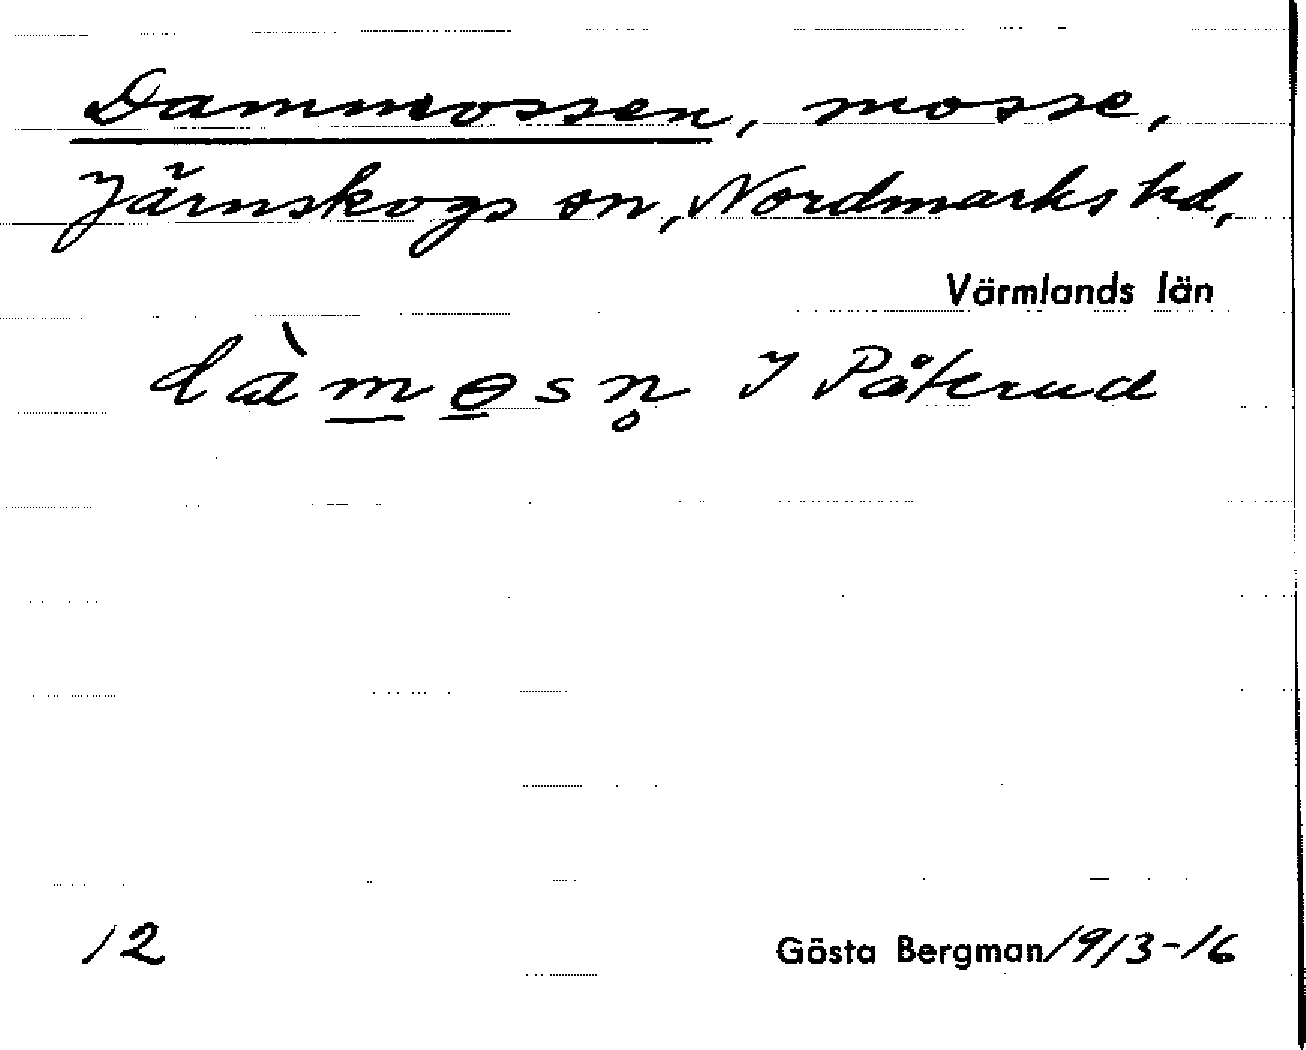 Dammossen, mosse,
Järnskogs sn, Nordmarks hd,
Värmlands län
dàm̲ɵ̲sn̥ I Påterud
12 Gösta Bergman 1913-16